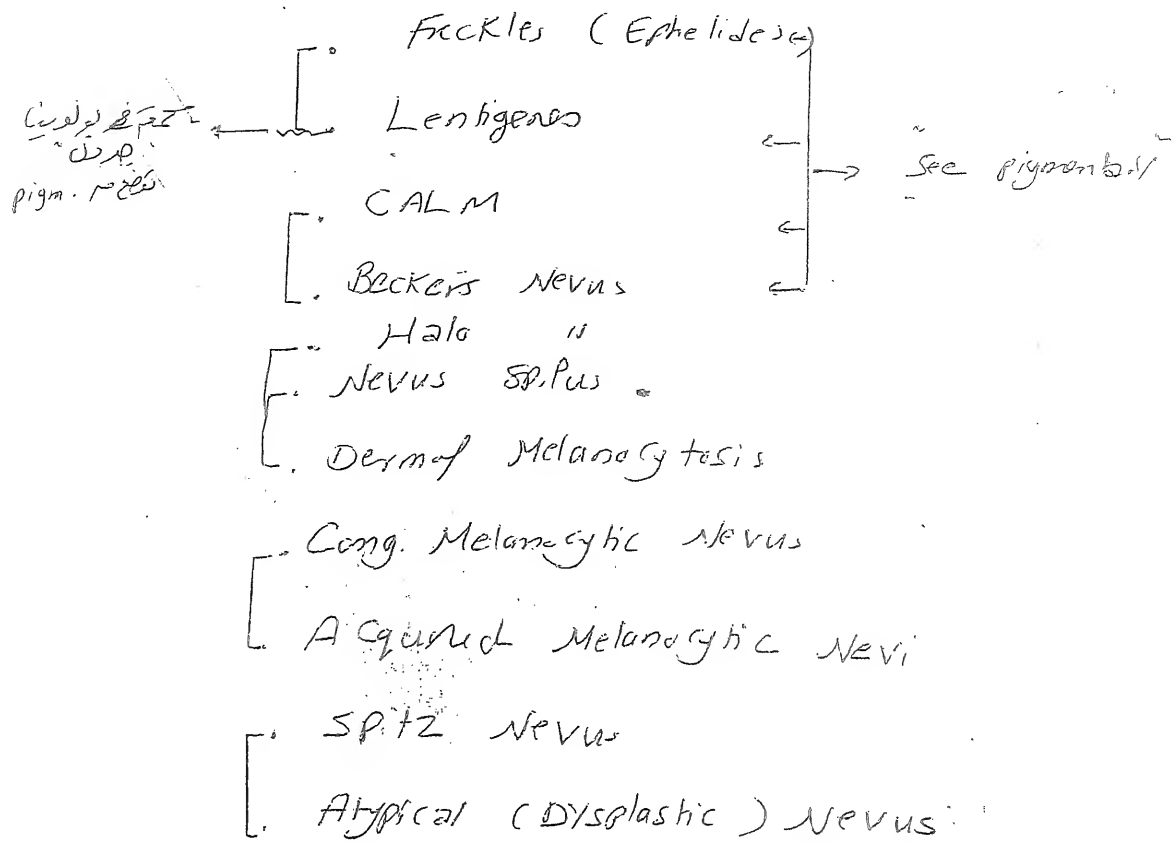 Freckles (Ephelides)
Lentigenes
CALM
See pigment.
pigm.
Becker's Nevus
Halo "
Nevus Spilus
Dermal Melanocytosis
Cong. Melanocytic Nevus
Acquired Melanocytic Nevi
Spitz Nevus
Atypical (Dysplastic) Nevus